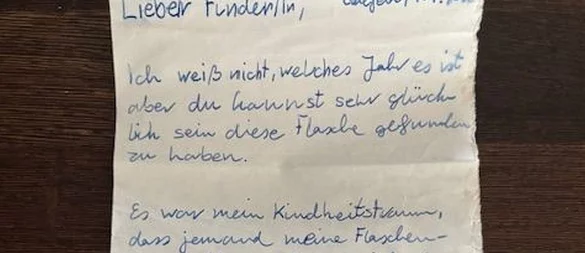 Lieber Finder/in,
Ich weiß nicht, welches Jahr es ist
aber du kannst sehr glück-
lich sein diese Flasche gefunden
zu haben.
Es war mein Kindheitstraum,
dass jemand meine Flaschen-